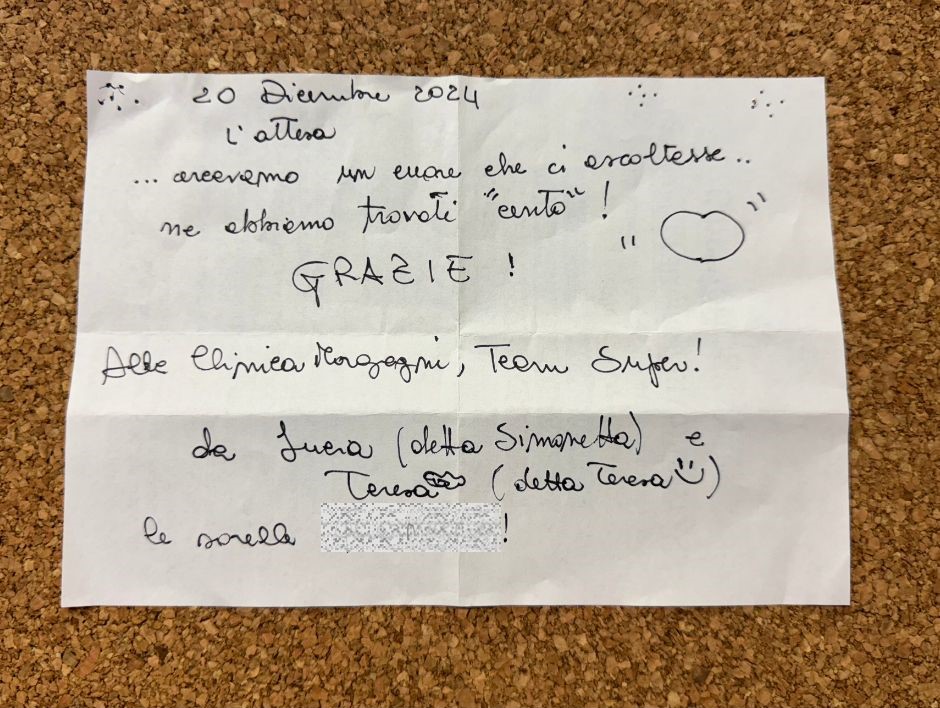 20 Dicembre 2024
L'attesa
... cercavamo un cuore che ci ascoltesse..
ne abbiamo trovati "cento" !
GRAZIE !
Alla Clinica Morgagni, Team Super!
da Lucia (detta Simonetta) e
Teresa (detta Teresa)
le sorelle !